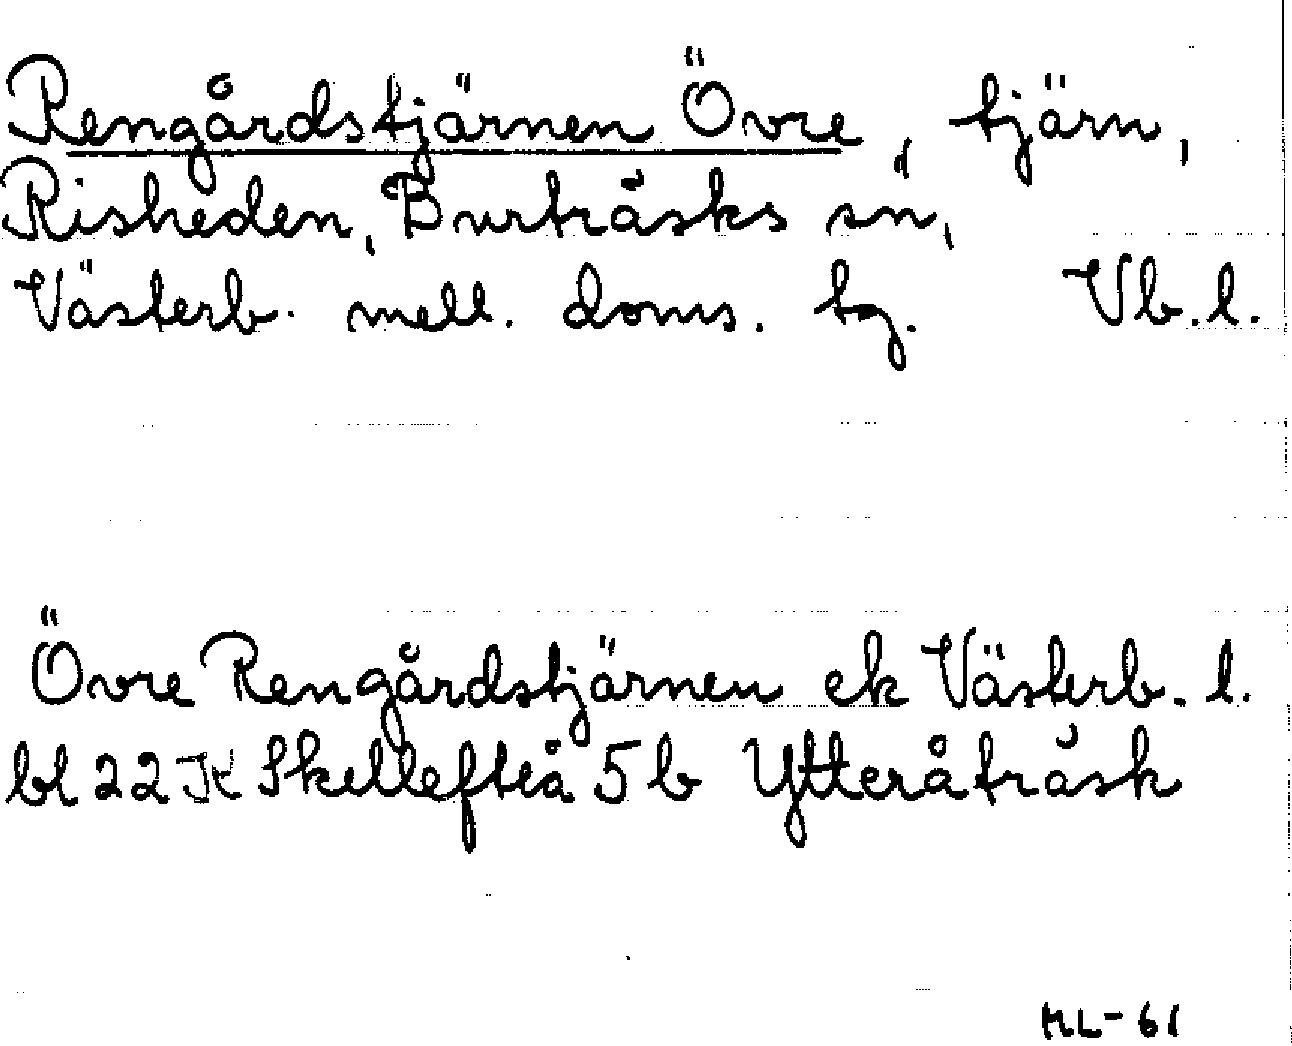 Rengårdstjärnen Övre, tjärn,
Risheden, Burträsks sn,
Västerb. mell. doms. tg. Vb. l.
Övre Rengårdstjärnen ek Västerb. l.
bl 22 K Skellefteå 5 b Ytteråträsk
ML-61